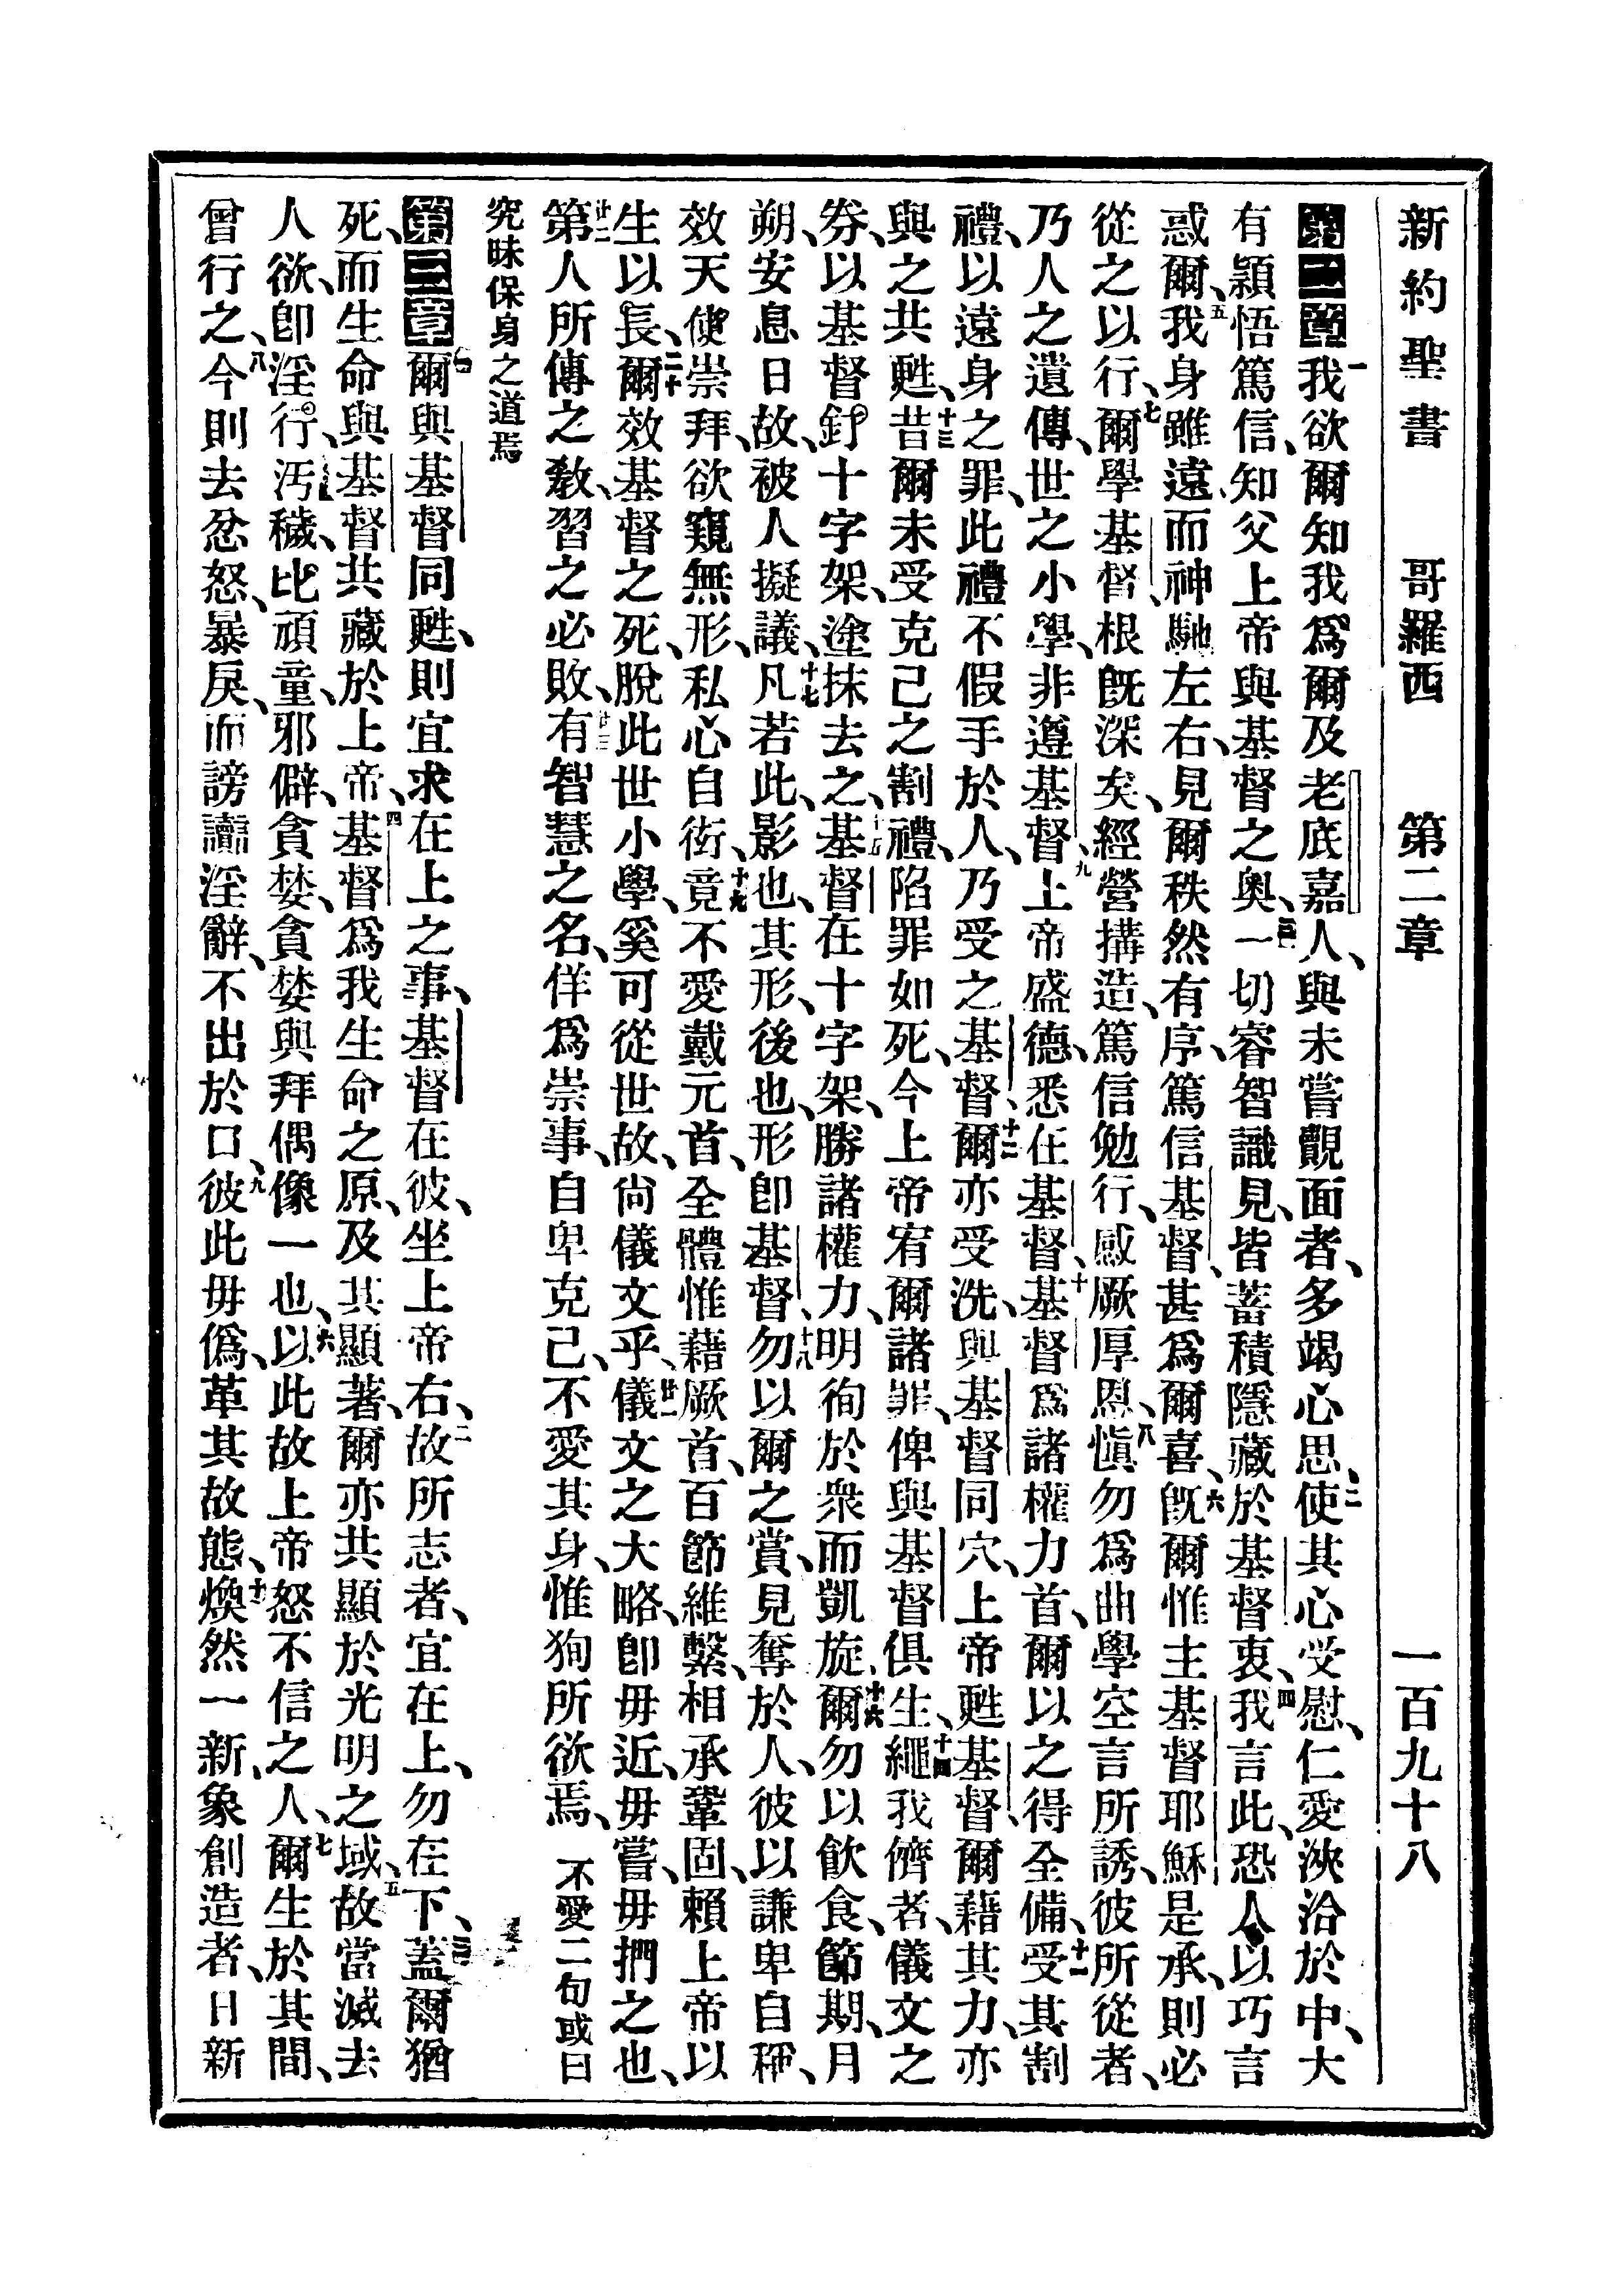 新約聖書 哥羅西 第二章 一百九十八
第二章一我欲爾知我爲爾及老底嘉人、與未嘗覿面者、多竭心思、二使其心受慰、仁愛浹洽於中、大
有穎悟篤信、知父上帝與基督之奧、三一切睿智識見、皆蓄積隱藏於基督衷、四我言此、恐人以巧言
惑爾、五我身雖遠、而神馳左右、見爾秩然有序、篤信基督、甚爲爾喜、六旣爾惟主基督耶穌是承、則必
從之以行、七爾學基督、根旣深矣、經營搆造、篤信勉行、感厥厚恩、八愼勿爲曲學空言所誘、彼所從者、
乃人之遺傳、世之小學、非遵基督、九上帝盛德、悉在基督、十基督爲諸權力首、爾以之得全備、十一受其割
禮、以遠身之罪、此禮不假手於人、乃受之基督、十二爾亦受洗、與基督同穴、上帝甦基督、爾藉其力、亦
與之共甦、十三昔爾未受克己之割禮、陷罪如死、今上帝宥爾諸罪、俾與基督俱生、十四繩我儕者、儀文之
券、以基督釘十字架、塗抹去之、十五基督在十字架、勝諸權力、明徇於衆而凱旋、十六爾勿以飮食、節期、月
朔、安息日故、被人擬議、十七凡若此、影也、其形、後也、形卽基督、十八勿以爾之賞、見奪於人、彼以謙卑自稱、
效天使崇拜、欲窺無形、私心自衒、十九竟不愛戴元首、全體惟藉厥首、百節維繫、相承鞏固、賴上帝以
生以長、二十爾效基督之死、脫此世小學、奚可從世故、尙儀文乎、廿一儀文之大略、卽毋近、毋嘗、毋捫之也、
廿二第人所傳之敎、習之必敗、廿三有智慧之名、佯爲崇事、自卑克己、不愛其身、惟狥所欲焉、 不愛二句或曰
究昧保身之道焉
第三章一爾與基督同甦、則宜求在上之事、基督在彼、坐上帝右、二故所志者、宜在上、勿在下、三蓋爾猶
死、而生命與基督共藏於上帝、四基督爲我生命之原、及其顯著、爾亦共顯於光明之域、五故當滅去
人欲、卽淫行、汚穢、比頑童、邪僻、貪婪、貪婪與拜偶像一也、六以此故上帝怒不信之人、七爾生於其間、
曾行之、八今則去忿怒、暴戾、而謗讟淫辭、不出於口、九彼此毋僞、革其故態、十煥然一新、象創造者、日新